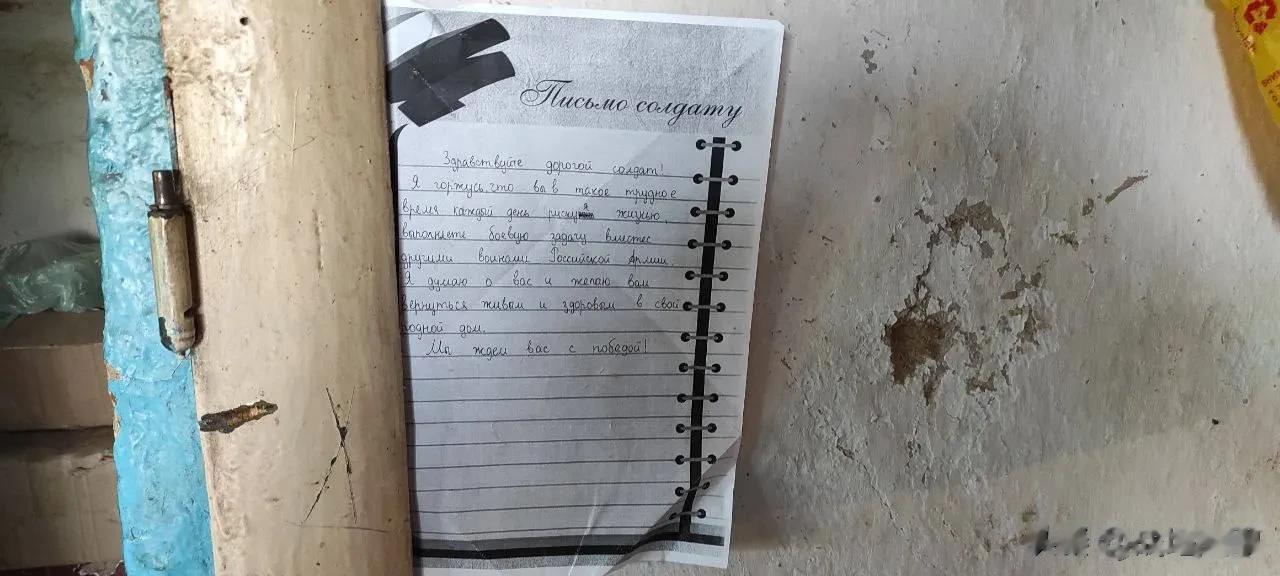 Письмо солдату
Здравствуйте дорогой солдат!
Я горжусь, что вы в такое трудное
время каждой день рискуя жизнью,
выполняете боевую задачу вместе с
другими воинами Российской Армии.
Я думаю о вас и желаю вам
вернуться живым и здоровым в свой
родной дом.
Мы ждем вас с победой!